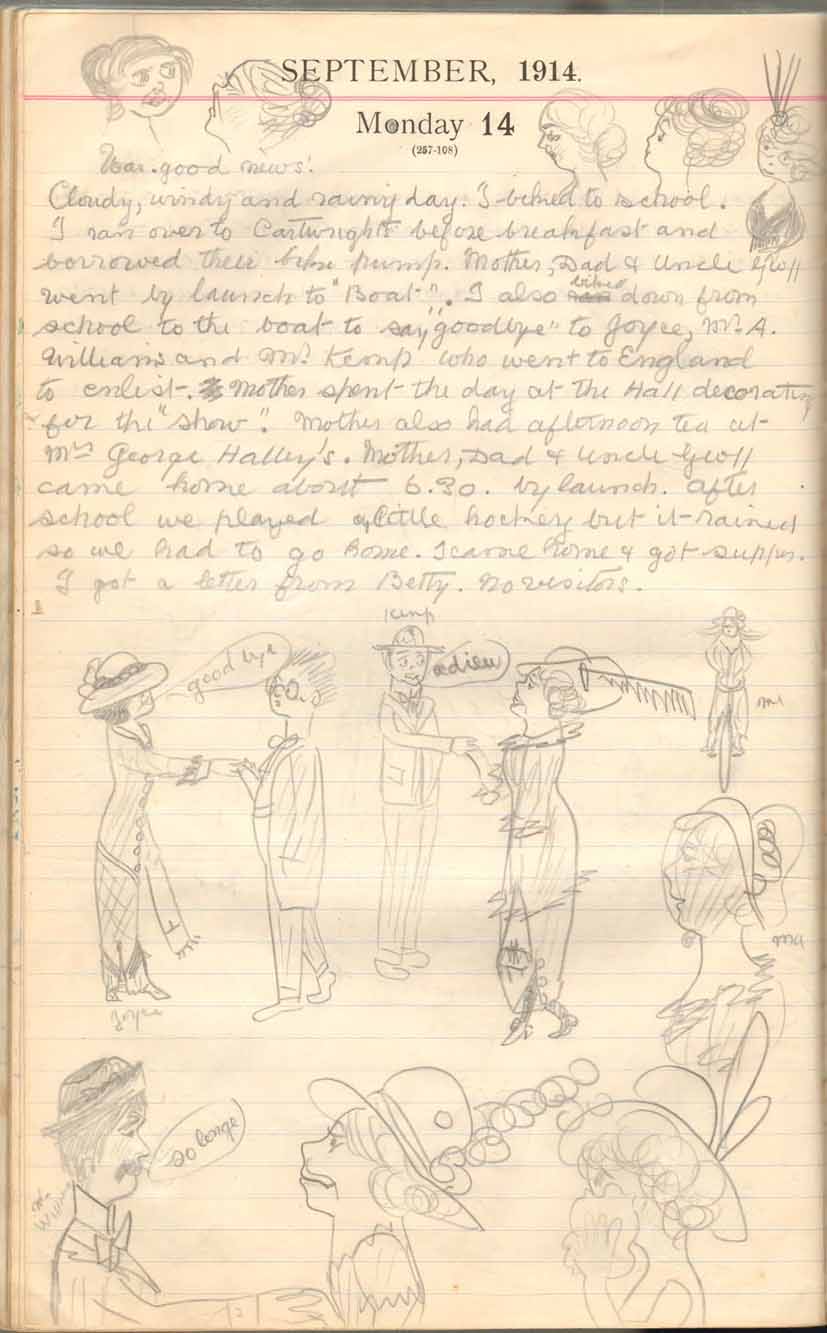 SEPTEMBER, 1914.
Monday 14
(257-108)
War. good news!
Cloudy, windy and rainy day. I biked to school.
I ran over to Cartwrights before breakfast and
borrowed their bike pump. Mother, Dad & Uncle Geoff
went by launch to "Boat". I also biked down from
school to the boat to say "goodbye" to Joyce, Mr. A.
Williams and Mr. Kemp who went to England
to enlist. Mother spent the day at the Hall decorating
for the "show". Mother also had afternoon tea at
Mrs George Halley's. Mother, Dad & Uncle Geoff
came home about 6.30. by launch. After
school we played a little hockey but it rained
so we had to go home. I came home & got supper.
I got a letter from Betty. No visitors.
Kemp
good bye
adieu
me
ma
Joyce
so longe
Mr
Williams